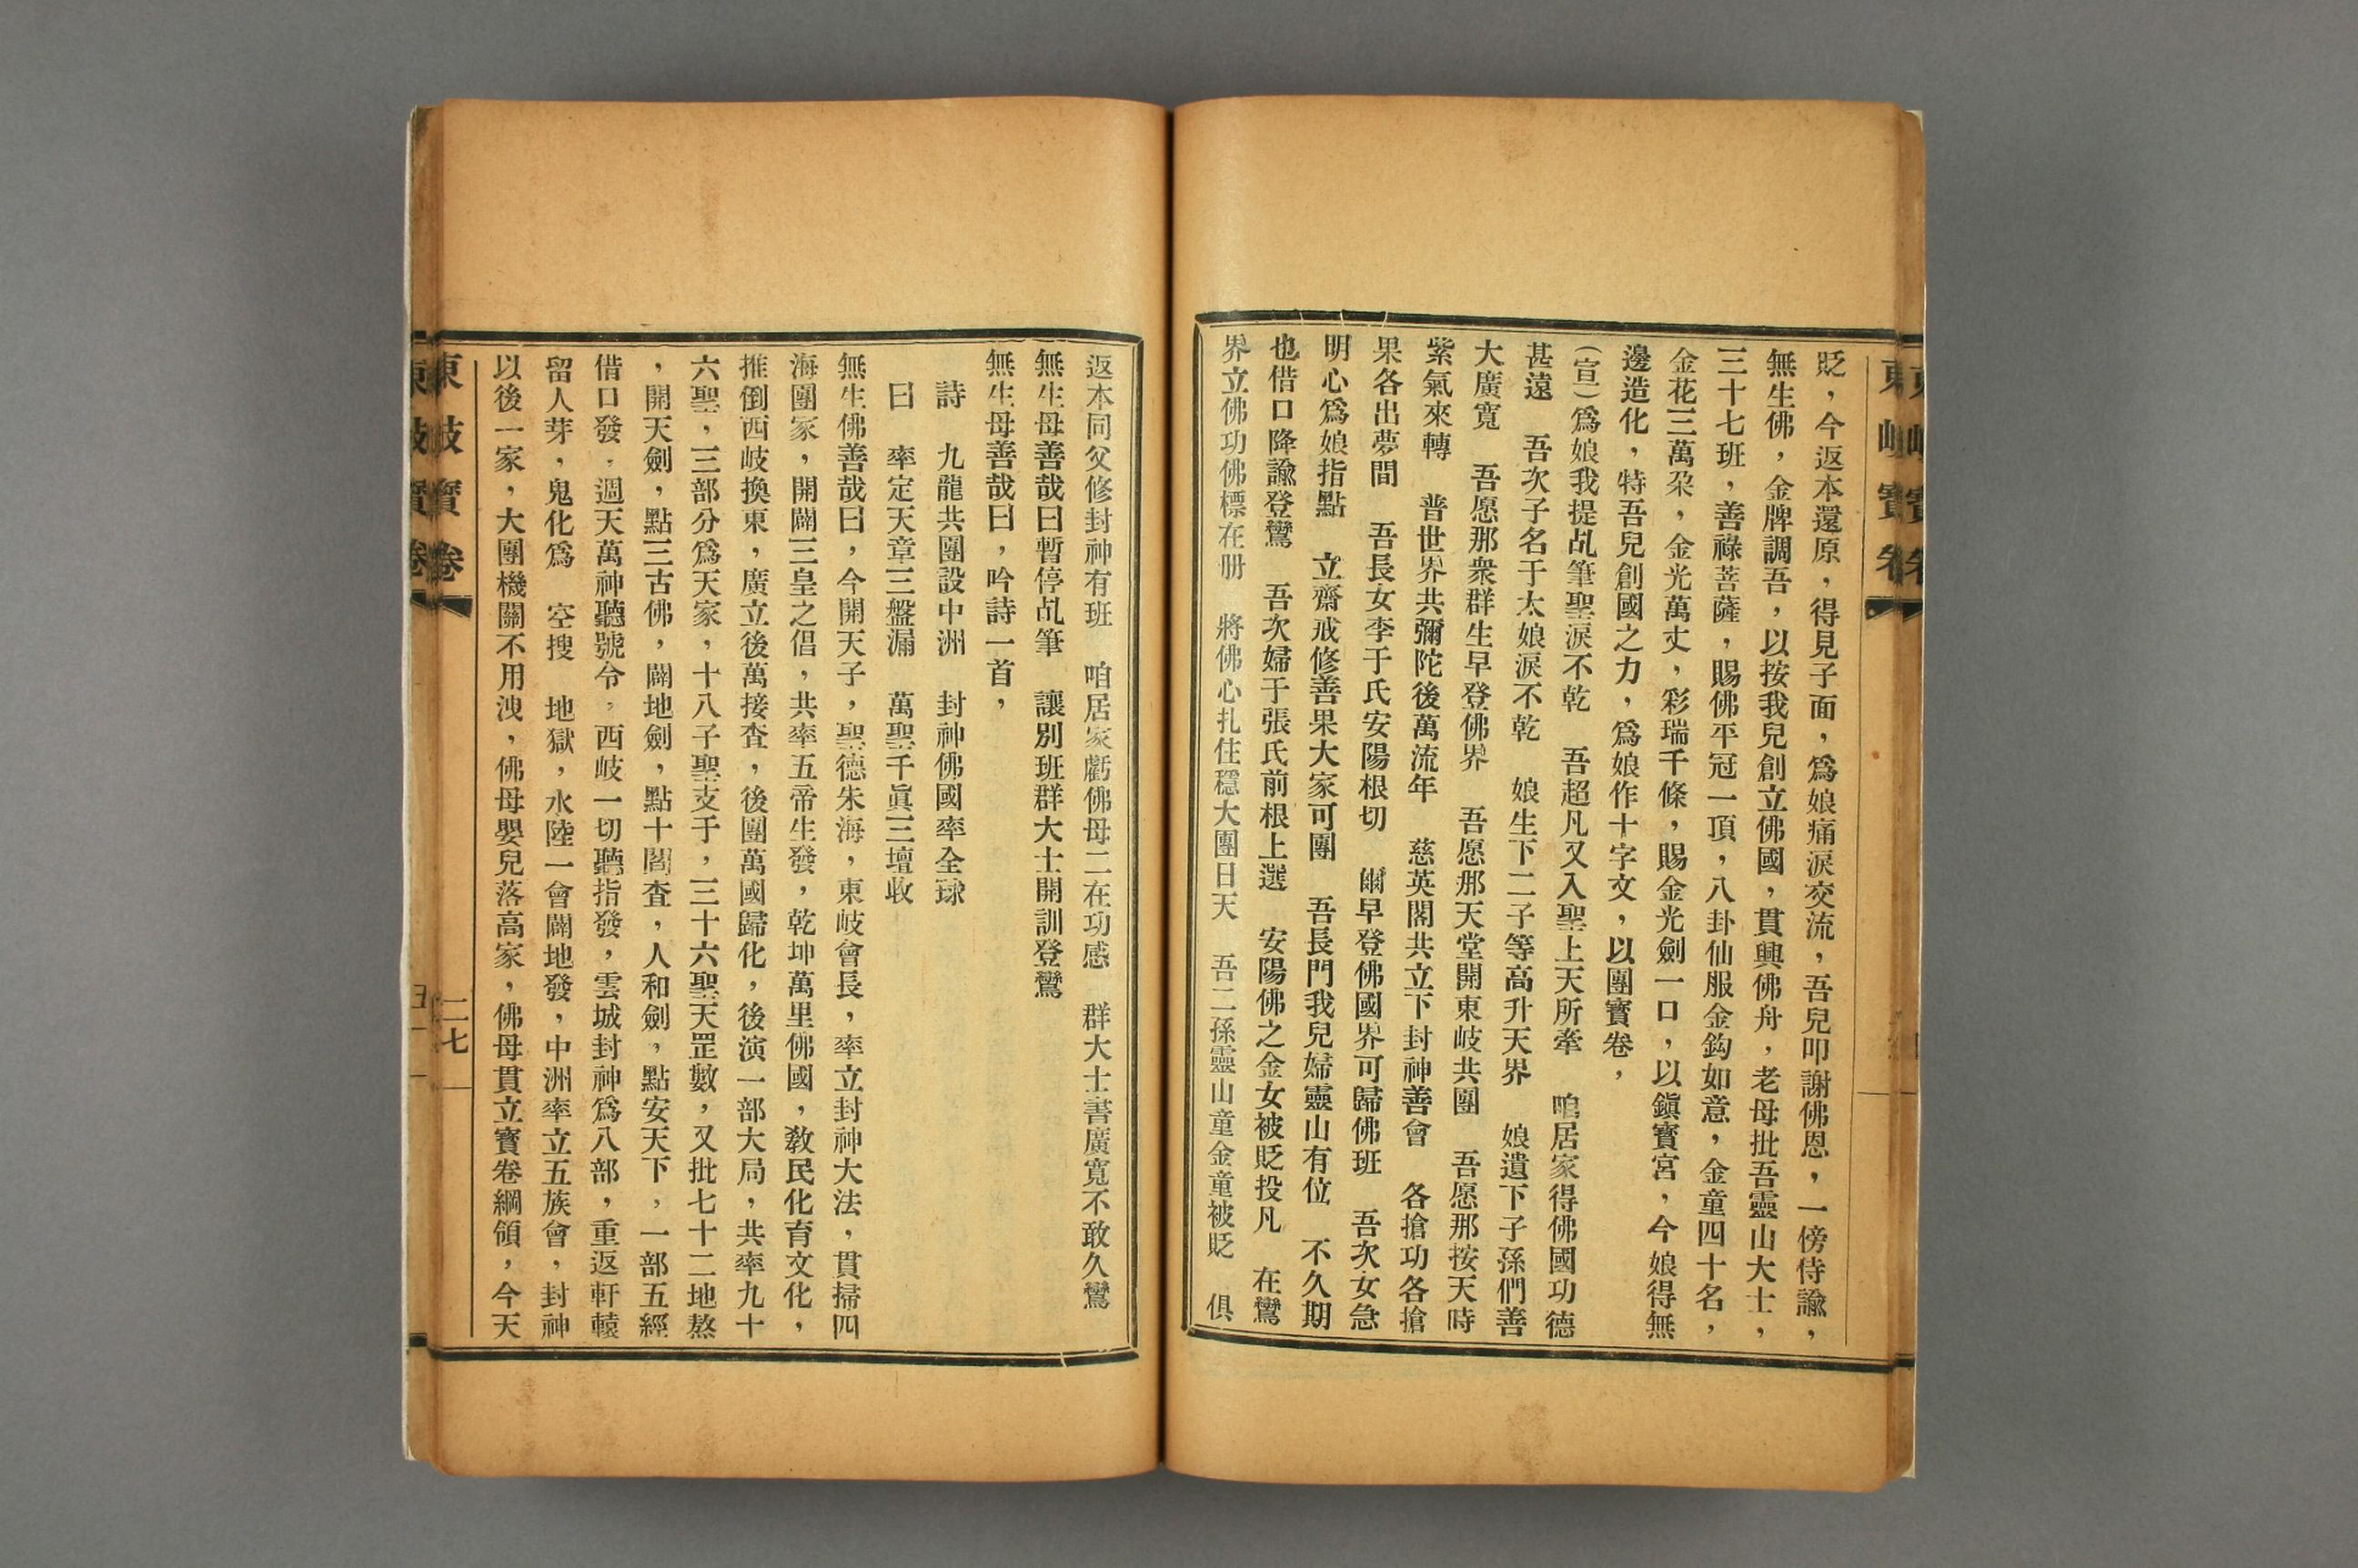 貶，今返本還原，得見子面，爲娘痛淚交流，吾兒叩謝佛恩，一傍侍諭，
無生佛，金牌調吾，以按我兒創立佛國，貫興佛舟，老母批吾靈山大士，
三十七班，善祿菩薩，賜佛平冠一頂，八卦仙服金鈎如意，金童四十名，
金花三萬朶，金光萬丈，彩瑞千條，賜金光劍一口，以鎭寳宮，今娘得無
邊造化，特吾兒創國之力，爲娘作十字文，以團寳卷，
（宣）爲娘我提乩筆聖淚不乾　吾超凡又入聖上天所牽　咱居家得佛國功德
甚遠　吾次子名于太娘淚不乾　娘生下二子等高升天界　娘遺下子孫們善
大廣寬　吾愿那衆群生早登佛界　吾愿那天堂開東岐共團　吾愿那按天時
紫氣來轉　普世界共彌陀後萬流年　慈英閣共立下封神善會　各搶功各搶
果各出夢間　吾長女李于氏安陽根切　爾早登佛國界可歸佛班　吾次女急
明心爲娘指點　立齋戒修善果大家可團　吾長門我兒婦靈山有位　不久期
也借口降諭登鸞　吾次婦于張氏前根上選　安陽佛之金女被貶投凡　在鸞
界立佛功佛標在册　將佛心扎住穩大團日天　吾二孫靈山童金童被貶　俱
返本同父修封神有班　咱居家虧佛母二在功感　群大士書廣寬不敢久鸞
無生母善哉曰暫停乩筆　讓別班群大士開訓登鸞
無生母善哉曰，吟詩一首，
詩　九龍共團設中洲　封神佛國率全球
曰　率定天章三盤漏　萬聖千眞三壇收
無生佛善哉曰，今開天子，聖德朱海，東岐會長，率立封神大法，貫掃四
海團家，開闢三皇之倡，共率五帝生發，乾坤萬里佛國，教民化育文化，
推倒西岐換東，廣立後萬接查，後團萬國歸化，後演一部大局，共率九十
六聖，三部分爲天家，十八子聖支于，三十六聖天罡數，又批七十二地熬
，開天劍，點三古佛，闢地劍，點十閻查，人和劍，點安天下，一部五經
借口發，週天萬神聽號令，西岐一切聽指發，雲城封神爲八部，重返軒轅
留人芽，鬼化爲　空搜　地獄，水陸一會闢地發，中洲率立五族會，封神
以後一家，大團機關不用洩，佛母嬰兒落高家，佛母貫立寳卷綱領，今天
東岐寳卷
二七